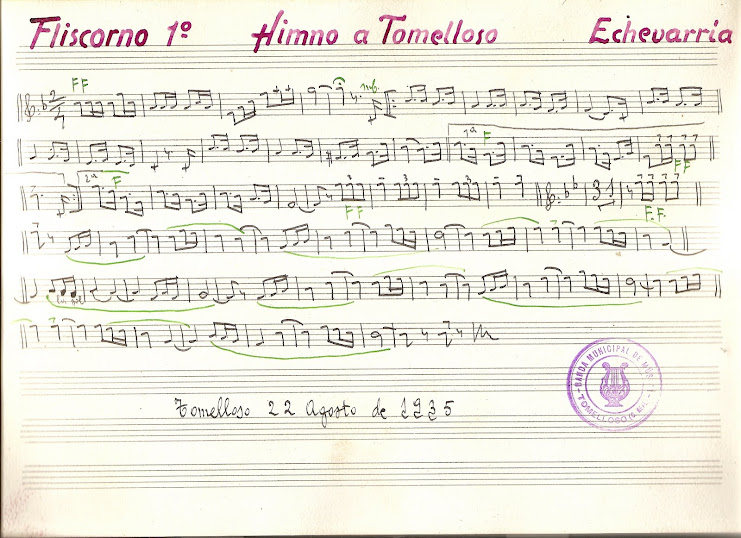 Fliscorno 1º Himno a Tomelloso Echevarria
FF
mf.
1ª F
FF
2ª F
FF
31
F.F.
Tomelloso 22 Agosto de 1935
BANDA MUNICIPAL DE
TOMELLOSO